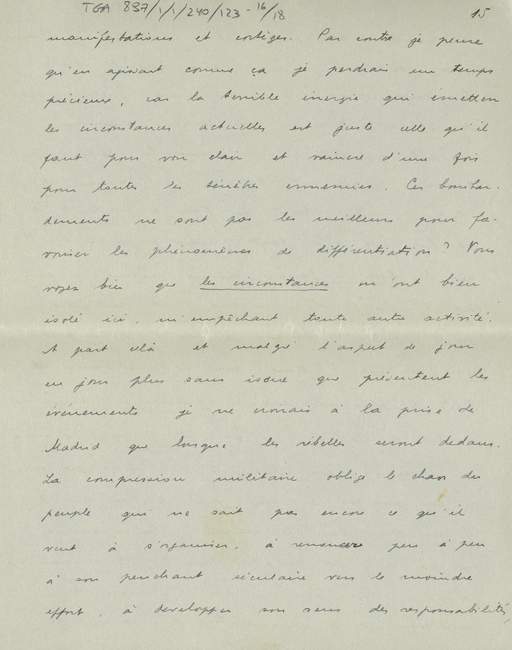 TGA 837/1/1/240/123-16/18
15
manifestations et cortèges. Par contre je pense
qu'en agissant comme ça je perdrais un temps
précieux, car la terrible énergie qui émettent
les circonstances actuelles est juste celle qu'il
faut pour voir clair et vaincre d'une fois
pour toutes les ténèbres ennemies. Ces bombar-
dements ne sont pas les meilleurs pour fa-
voriser les phénomènes de différentiation? Vous
voyez bien que les circonstances m'ont bien
isolé ici, m'empêchant toute autre activité.
A part celà et malgré l'aspect de jour
en jour plus sans issue que présentent les
événements je ne croirais à la prise de
Madrid que lorsque les rébelles seront dedans.
La compression militaire oblige le chaos du
peuple qui ne sait pas encore ce qu'il
veut à s'organiser, à renoncer peu à peu
à son penchant séculaire vers le moindre
effort, à developper son sens des responsabilités,